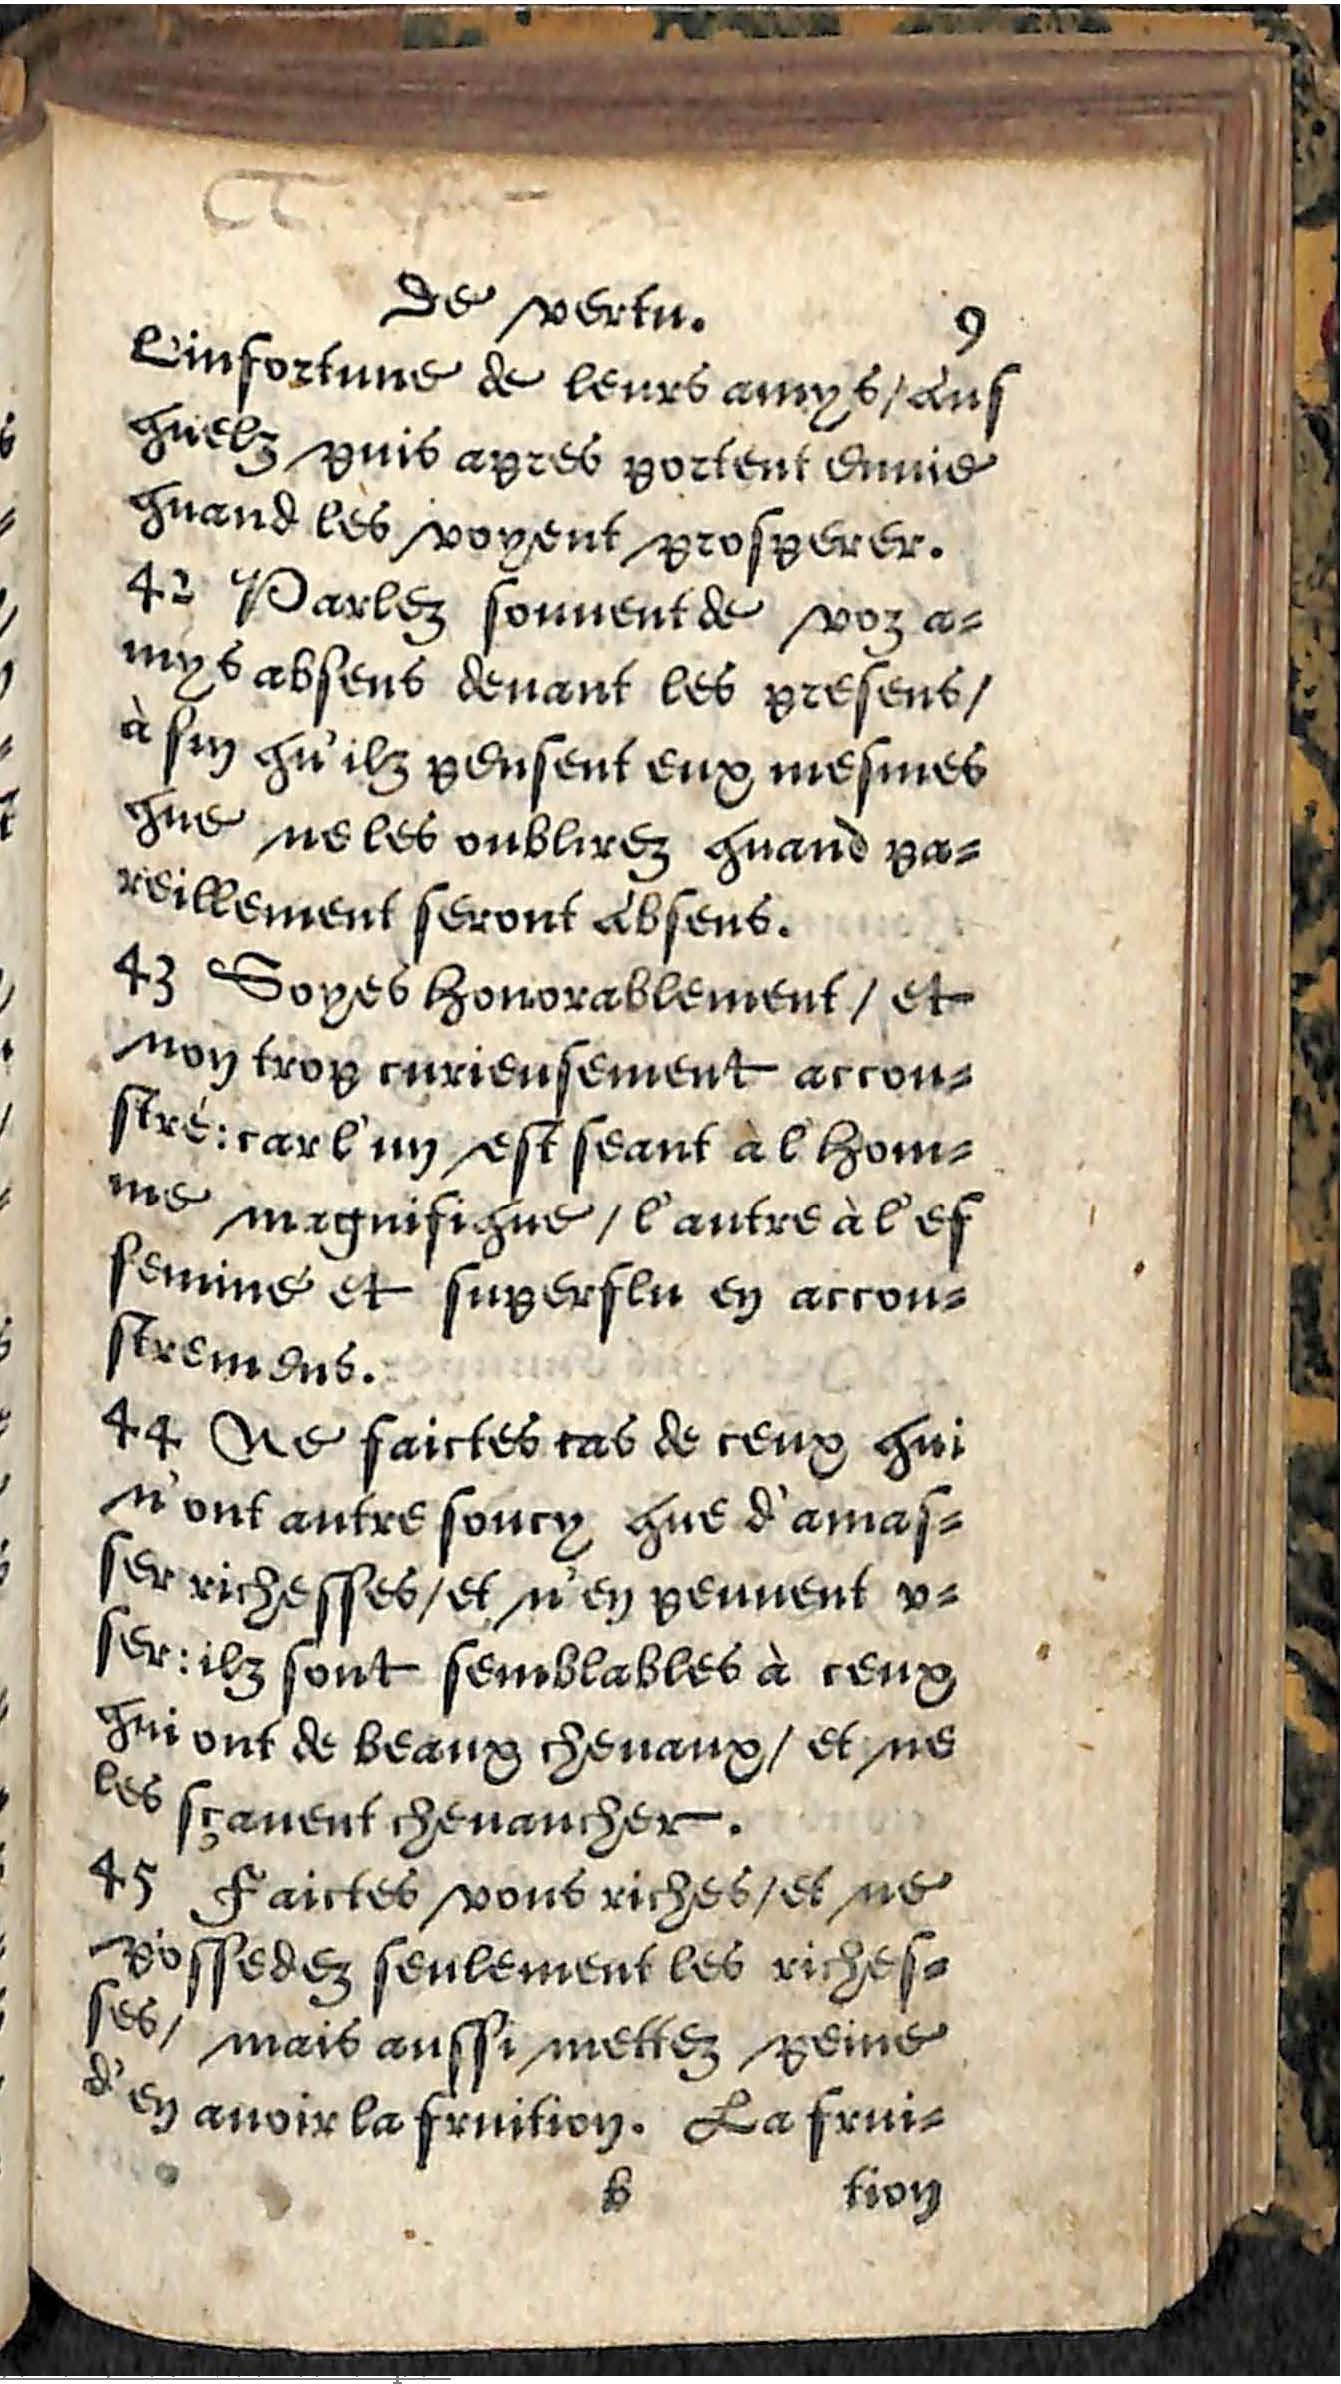 De vertu. 9
L'infortune de leurs amys/ aus
quelz puis apres portent enuie
quand les voyent prosperer.
42 Parlez souuent de voz a=
mys absens deuant les presens/
à fin qu'ilz pensent eux mesmes
que ne les oublirez quand pa=
reillement seront absens.
43 Soyes honorablement/ et
non trop curieusement accou=
stré: car l'un est seant à l'hom=
me magnifique/ l'autre à l'ef
feminé et superflu en accou=
stremens.
44 Ne faictes cas de ceux qui
n'ont autre soucy que d'amas=
ser richesses/ et n'en peuuent v=
ser: ilz sont semblables à ceux
qui ont de beaux cheuaux/ et ne
les sçauent cheuaucher.
45 Faictes vous riches/ et ne
possedez seulement les riches=
ses/ mais aussi mettez peine
d'en auoir la fruition. La frui=
b tion